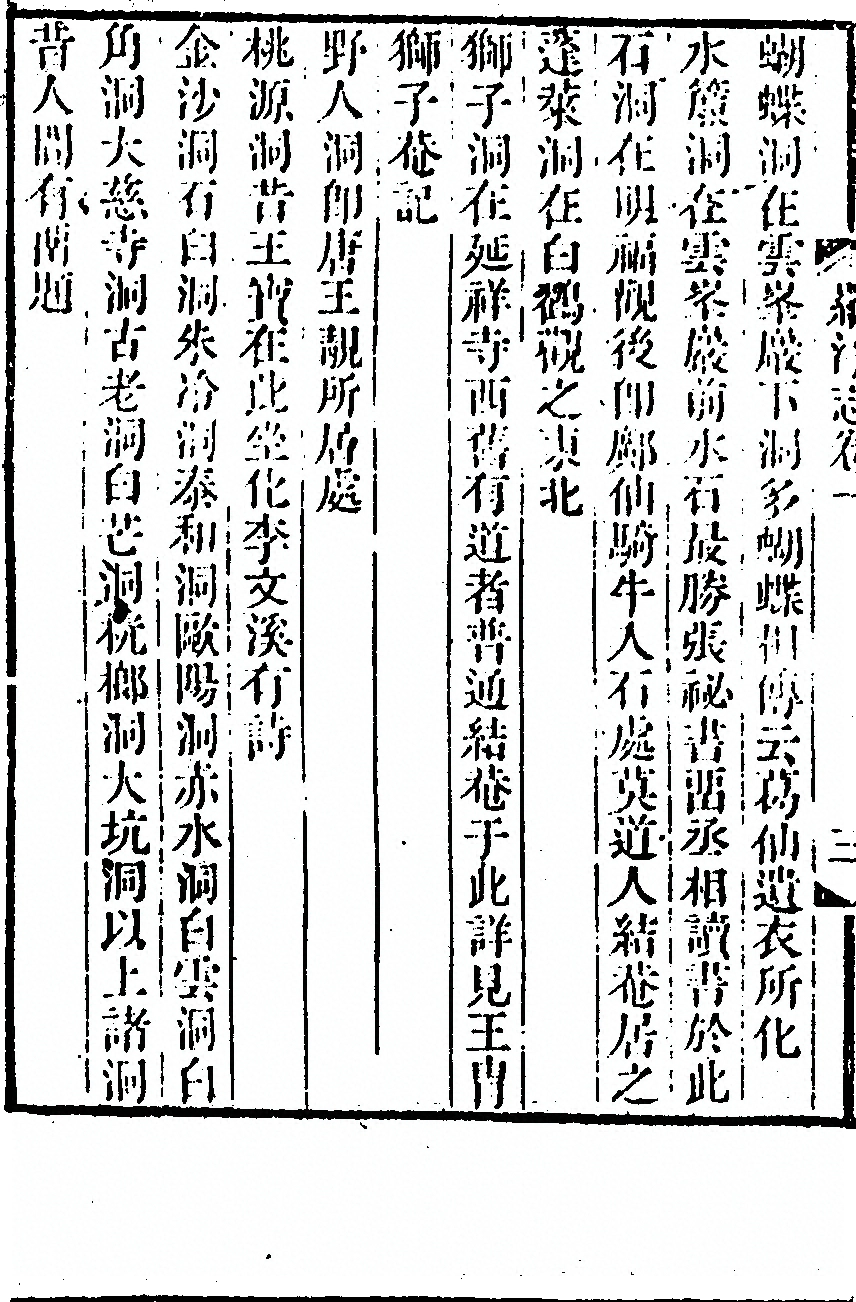 蝴蝶洞在雲峯巖下洞多蝴蝶相傳云葛仙遺衣所化
水簾洞在雲峯巖前水石最勝張祕書留丞相讀書於此
石洞在明福觀後即鄺仙騎牛入石處莫道人結菴居之
蓬萊洞在白鶴觀之東北
獅子洞在延祥寺西舊有道者普通結菴于此詳見王胄
獅子菴記
野人洞即唐王靚所居處
桃源洞昔王寶在此坐化李文溪有詩
金沙洞石臼洞朱冶洞泰和洞歐陽洞赤水洞白雲洞白
角洞大慈寺洞古老洞白芒洞桄榔洞大坑洞以上諸洞
昔人間有留題